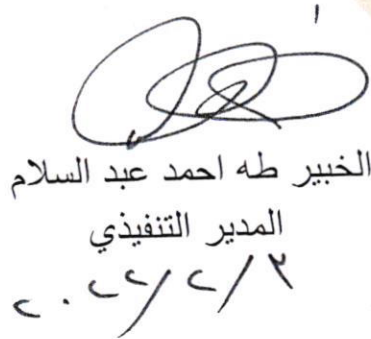 الخبير طه احمد عبد السلام
المدير التنفيذي
٢٠٢٢/٢/٣